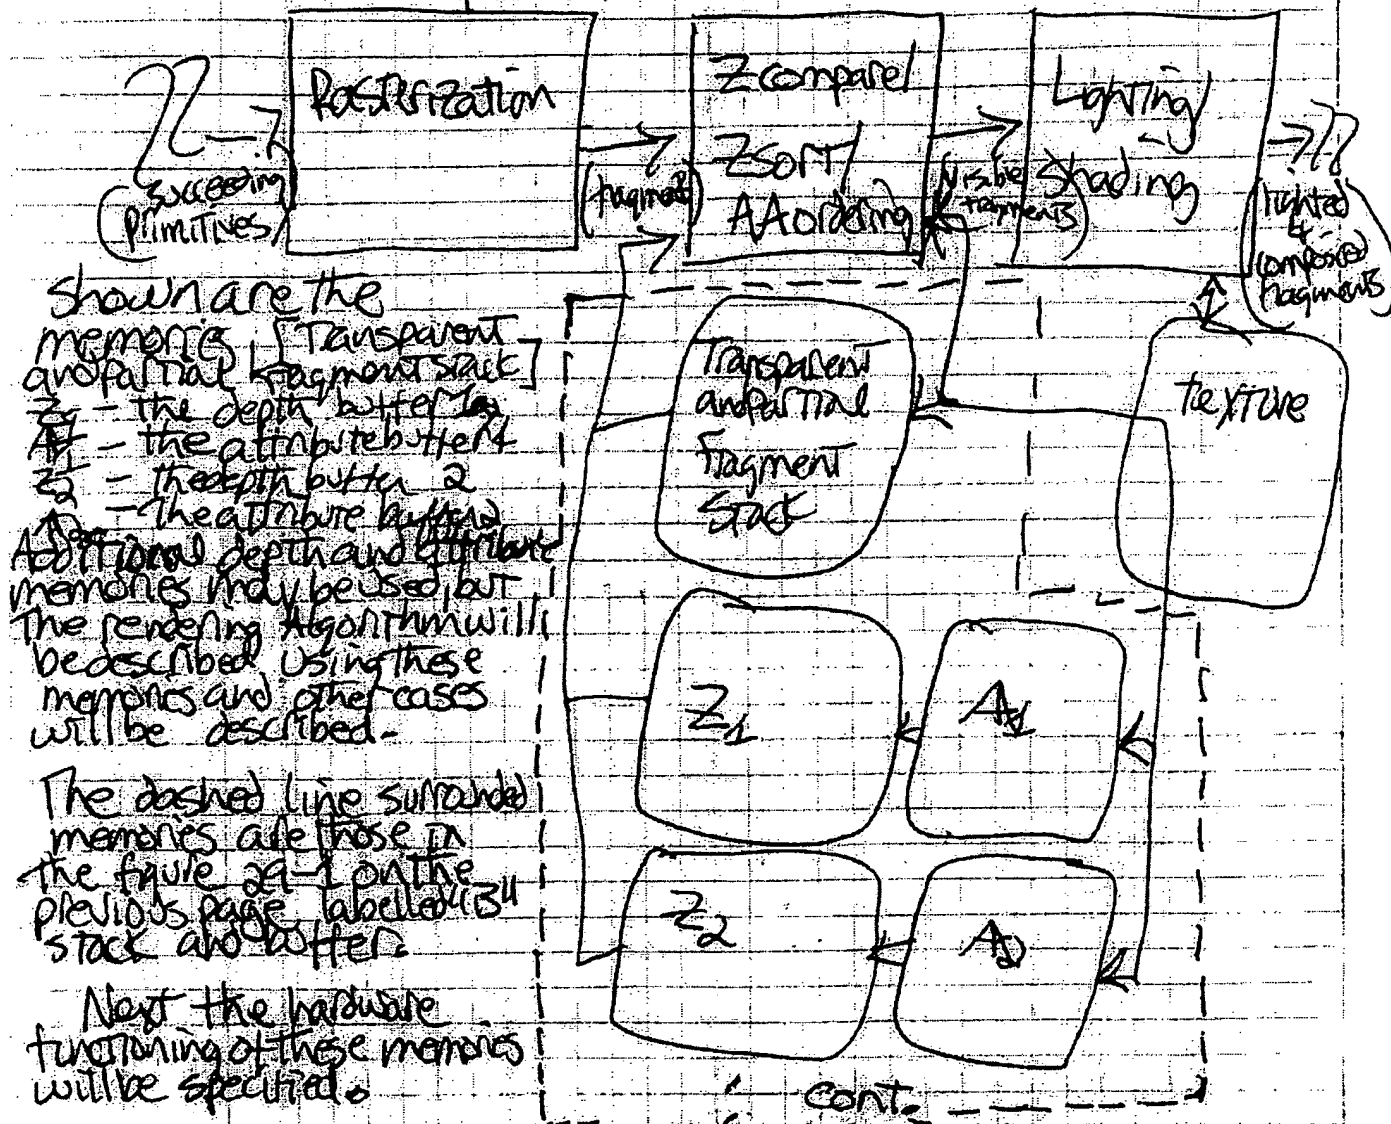 Rasterization
Zcompare/
Zsort/
AAordering
Lighting/
Shading
(succeeding
primitives)
(fragments)
(visible
fragments)
(lighted
&
composited
fragments)
Shown are the
memories [Transparent
and partial fragment stack]
Z1 - the depth buffer 1
A1 - the attribute buffer 1
Z2 - The depth buffer 2
A2 - The attribute buffer 2
Additional depth and attribute
memories may be used, but
The rendering Algorithm will
be described using these
memories and other cases
will be described.
The dashed line surrounded
memories are those in
the figure 29-1 on the
previous page labelled "B"
stack and buffer.
Next the hardware
functioning of these memories
will be specified.
Transparent
and partial
fragment
Stack
texture
Z1
A1
Z2
A2
cont.